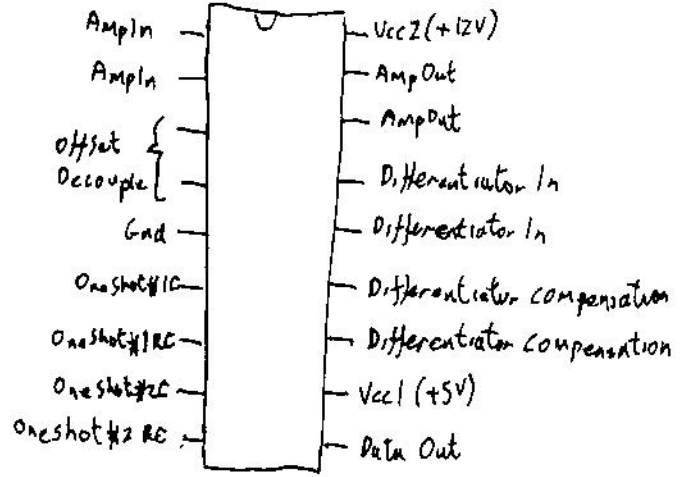 AmpIn
AmpIn
Offset
Decouple
Gnd
OneShot#1C
OneShot#1RC
OneShot#2C
Oneshot#2 RC
Vcc2 (+12V)
AmpOut
AmpOut
Differentiator In
Differentiator In
Differentiator compensation
Differentiator compensation
Vcc1 (+5V)
Data Out